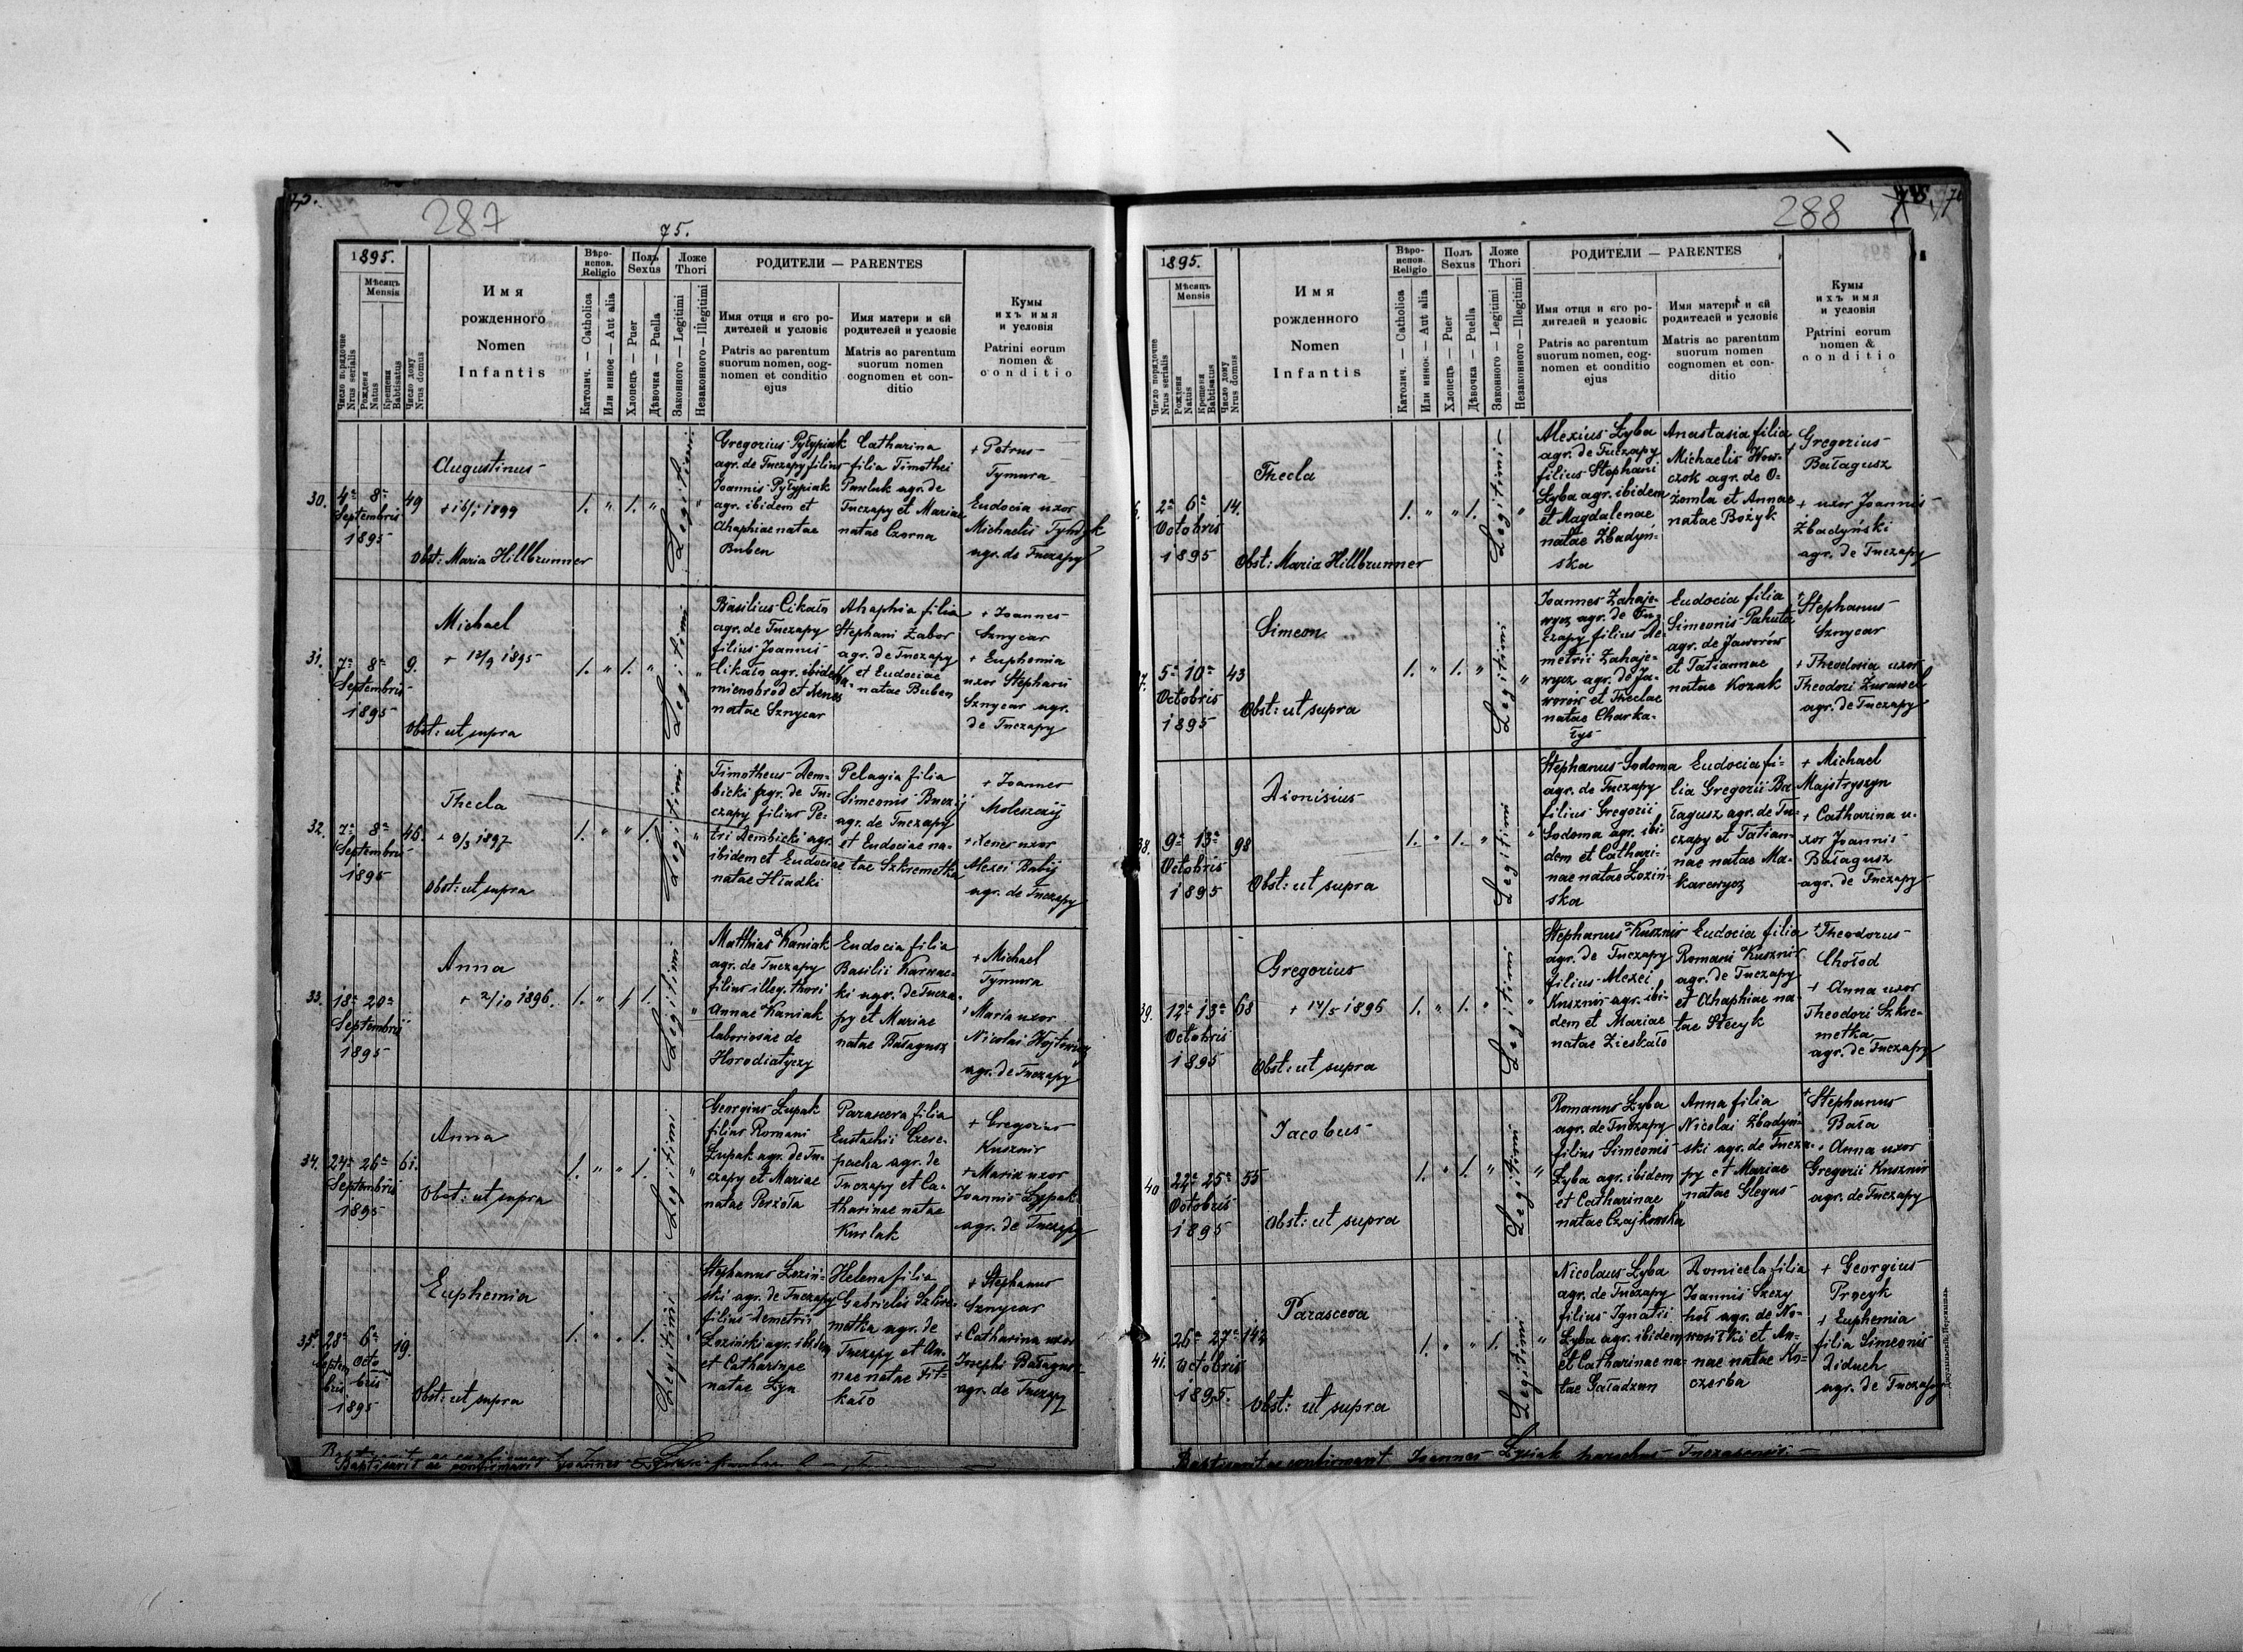 287
75.
1895.
Мѣсяцъ
Mensis
Число порядочне
Nrus serialis
Рожденя
Natus
Крещеня
Babtisatus
Число дому
Nrus domus
Имя
рожденного
Nomen
Infantis
Вѣро-
испов.
Religio
Католич. — Catholica
Или инное — Aut alia
Полъ
Sexus
Хлопецъ — Puer
Дѣвочка — Puella
Ложе
Thori
Законного — Legitimi
Незаконного — Illegitimi
РОДИТЕЛИ — PARENTES
Имя отця и єго ро-
дителей и условіє
Patris ac parentum
suorum nomen, cog-
nomen et conditio
ejus
Имя матери и єй
родителей и условіє
Matris ac parentum
suorum nomen
cognomen et con-
ditio
Кумы
ихъ имя
и условія
Patrini eorum
nomen &
conditio
30.
4a 8a
Septembris
1895
49
Augustinus
Obst: Maria Hillbrunner
1. " 1. "
Legitimi
Gregorius Pyłypiak
agr. de Tuczapy filius
Joannis Pyłypiak
agr. ibidem et
Ahaphiae natae
Buben
Catharina
filia Timothei
Pawluk agr. de
Tuczapy et Mariae
natae Czorna
+ Petrus
Tymura
Eudocia uxor
Michaelis
agr. de Tuczapy
31.
7a 8a
Septembris
1895
9.
Michael
+ 12/9 1895
Obst: ut supra
1. " 1. "
Legitimi
Basilius Cikało
agr. de Tuczapy
filius Joannis
Cikało agr. ibidem
et Xenae
natae Sznycar
Ahaphia filia
Stephani Żabor
agr. de Tuczapy
et Eudociae
natae Buben
+ Joannes
Sznycar
+ Euphemia
uxor Stephani
Sznycar agr.
de Tuczapy
32.
7a 8a
Septembris
1895
46.
Thecla
+ 9/3 1897
Obst: ut supra
1. " " 1.
Legitimi
Timotheus Dem-
bicki agr. de Tu-
czapy filius Pe-
tri Dembicki agr.
ibidem et Eudociae
natae Hładki
Pelagia filia
Simeonis Buczij
agr. de Tuczapy
et Eudociae na-
tae Szkremetka
+ Joannes
Moleszczij
+ Xenes uxor
Alexei Babij
agr. de Tuczapy
33.
18a 20a
Septembris
1895
Anna
+ 2/10 1896.
1. " " 1.
Legitimi
Matthias Kaniak
agr. de Tuczapy
filius illeg. thori
Annae Kaniak
laboriosae de
Horodiatyczy
Eudocia filia
Basilii Karwac-
ki agr. de Tucza-
py et Mariae
natae Bałagusz
+ Michael
Tymura
+ Maria uxor
Nicolai Wojtowicz
agr. de Tuczapy
34.
24a 26a
Septembris
1895
61.
Anna
Obst: ut supra
1. " " 1.
Legitimi
Georgius Łupak
filius Romani
Łupak agr. de Tu-
czapy et Mariae
natae Perżoła
Parasceva filia
Eustachii Czere-
pacha agr. de
Tuczapy et Ca-
tharinae natae
Kurlak
+ Gregorius
Kusznir
+ Maria uxor
Joannis Łypak
agr. de Tuczapy
35.
28a 6a
Septem Octo
bris bris
1895
19.
Euphemia
Obst: ut supra
1. " " 1.
Legitimi
Stephanus Łoziń-
ski agr. de Tuczapy
filius Demetrii
Łoziński agr. ibidem
et Catharinae
natae Łyn
Helena filia
Gabrielis Szkre-
metka agr. de
Tuczapy et An-
nae natae Fit-
kało
+ Stephanus
Sznycar
+ Catharina uxor
Josephi Bałagusz
agr. de Tuczapy
Baptisavit ac confirmavit Joannes
288
1895.
Мѣсяцъ
Mensis
Число порядочне
Nrus serialis
Рожденя
Natus
Крещеня
Babtisatus
Число дому
Nrus domus
Имя
рожденного
Nomen
Infantis
Вѣро-
испов.
Religio
Католич. — Catholica
Или инное — Aut alia
Полъ
Sexus
Хлопецъ — Puer
Дѣвочка — Puella
Ложе
Thori
Законного — Legitimi
Незаконного — Illegitimi
РОДИТЕЛИ — PARENTES
Имя отця и єго ро-
дителей и условіє
Patris ac parentum
suorum nomen, cog-
nomen et conditio
ejus
Имя матери и єй
родителей и условіє
Matris ac parentum
suorum nomen
cognomen et con-
ditio
Кумы
ихъ имя
и условія
Patrini eorum
nomen &
conditio
2a 6a
Octobris
1895
14.
Thecla
Obst: Maria Hillbrunner
1. " " 1.
Legitimi
Alexius Łyba
agr. de Tuczapy
filius Stephani
Łyba agr. ibidem
et Magdalenae
natae Zbadyń-
ska
Anastasia filia
Michaelis
czok agr. de O-
żomla et Annae
natae Bożyk
Gregorius
Bałagusz
+ uxor Joannis
Zbadyński
agr. de Tuczapy
5a 10a
Octobris
1895
43
Simeon
Obst: ut supra
1. " 1. "
Legitimi
Joannes Zahaje-
wycz agr. de Tu-
czapy filius De-
metrii Zahaje-
wycz agr. de Ja-
worów et Theclae
natae Charka-
łys
Eudocia filia
Simeonis Pakuta
agr. de Jaworów
et Tatiannae
natae Kozak
+ Stephanus
Sznycar
+ Theodosia uxor
Theodori Żurawel
agr. de Tuczapy
38.
9a 13a
Octobris
1895
98
Dionisius
Obst: ut supra
1. " 1. "
Legitimi
Stephanus Sodoma
agr. de Tuczapy
filius Gregorii
Sodoma agr. ibi-
dem et Cathari-
nae natae Łoziń-
ska
Eudocia fi-
lia Gregorii Ba-
łagusz agr. de Tu-
czapy et Tatian-
nae natae Ma-
karewycz
+ Michael
Majstryszyn
+ Catharina u-
xor Joannis
Bałagusz
agr. de Tuczapy
39.
12a 13a
Octobris
1895
68
Gregorius
+ 14/5 1896
Obst: ut supra
1. " 1. "
Legitimi
Stephanus Kusznir
agr. de Tuczapy
filius Alexei
Kusznir agr. ibi-
dem et Mariae
natae Zieskało
Eudocia filia
Romani Kusznir
agr. de Tuczapy
et Ahaphiae na-
tae Stecyk
+ Theodorus
Chołod
+ Anna uxor
Theodori Szkre-
metka
agr. de Tuczapy
40
22a 25a
Octobris
1895
55
Jacobus
Obst: ut supra
1. " 1. "
Legitimi
Romanus Łyba
agr. de Tuczapy
filius Simeonis
Łyba agr. ibidem
et Catharinae
natae Czajkowska
Anna filia
Nicolai Zbadyń-
ski agr. de Tucza-
py et Mariae
natae Glegus
+ Stephanus
Bała
+ Anna uxor
Gregorii Kusznir
agr. de Tuczapy
41.
26a 27a
Octobris
1895.
142
Parasceva
Obst: ut supra
1. " " 1.
Legitimi
Nicolaus Łyba
agr. de Tuczapy
filius Ignatii
Łyba agr. ibidem
et Catharinae na-
tae Gaładzun
Domicela filia
Joannis Szczy
hoł agr. de No-
wosiłki et An-
nae natae Ko-
czerba
+ Georgius
Prȩcyk
+ Euphemia
filia Simeonis
Diduch
agr. de Tuczapy
Baptisavit ac confirmavit Joannes Łysiak parochus Tuczapensis